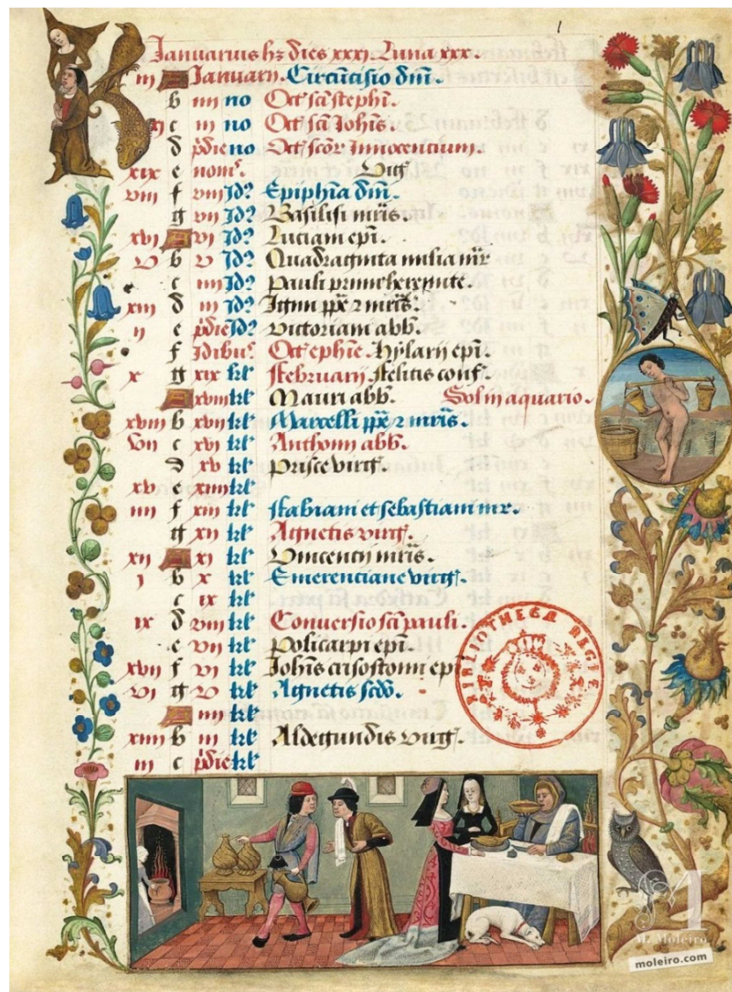 1
Januarius hz dies xxxj. Luna xxx.
iij A Januarij. Circu̅cisio dn̅i.
b iiij no Oct̅ sc̅i stephi̅.
xj c iij no Oct̅ sc̅i Joh̅is.
d p̅die no Oct̅ sc̅or̅ Innocentium.
xix e nonas. Vig̅
viij f viij Id? Epiph̅ia dn̅i.
g vij Id? Basilisi mr̅is.
xvj A vj Id? Luciani ep̅i.
v b v Id? Quadraginta milia mr̅
c iiij Id? Pauli primi heremite.
xiij d iij Id? Igini pp̅e z mr̅is.
ij e p̅die Id? victoriani abb̅.
f Idibus. Oct̅ eph̅ie. Hylarij ep̅i.
x g xix kl̅ februarij. felitis conf̅.
A xviij kl̅ Mauri abb̅. Sol in aquario.
xviij b xvij kl̅ Marcelli pp̅e z mr̅is.
vij c xvj kl̅ Anthonij abb̅.
d xv kl̅ Prisce virg̅.
xv e xiiij kl̅
iiij f xiij kl̅ fabiani et sebastiani mr̅.
g xij kl̅ Agnetis virg̅.
xij A xj kl̅ Vincentij mr̅is.
j b x kl̅ Emerentiane virg̅.
c ix kl̅
ix d viij kl̅ Conversio sc̅i pauli.
e vij kl̅ Policarpi ep̅i.
xvij f vj kl̅ Joh̅is crisostomi ep̅i
vj g v kl̅ Agnetis sc̅do.
A iiij kl̅
xiiij b iij kl̅ Aldegundis virg̅.
iij c p̅die kl̅
BIBLIOTHECA REGIE
M. Moleiro
moleiro.com